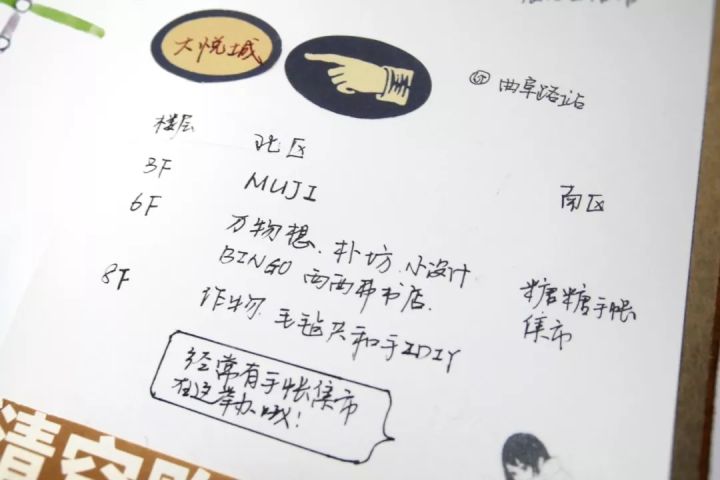 大悦城
曲阜路站
楼层 北区 南区
3F MUJI
6F 万物想、朴坊、小设计、
BINGO 西西弗书店、
糖糖手帐
集市
8F 作物、毛毡共和手工DIY
经常有手帐集市
在这举办哦!
清空